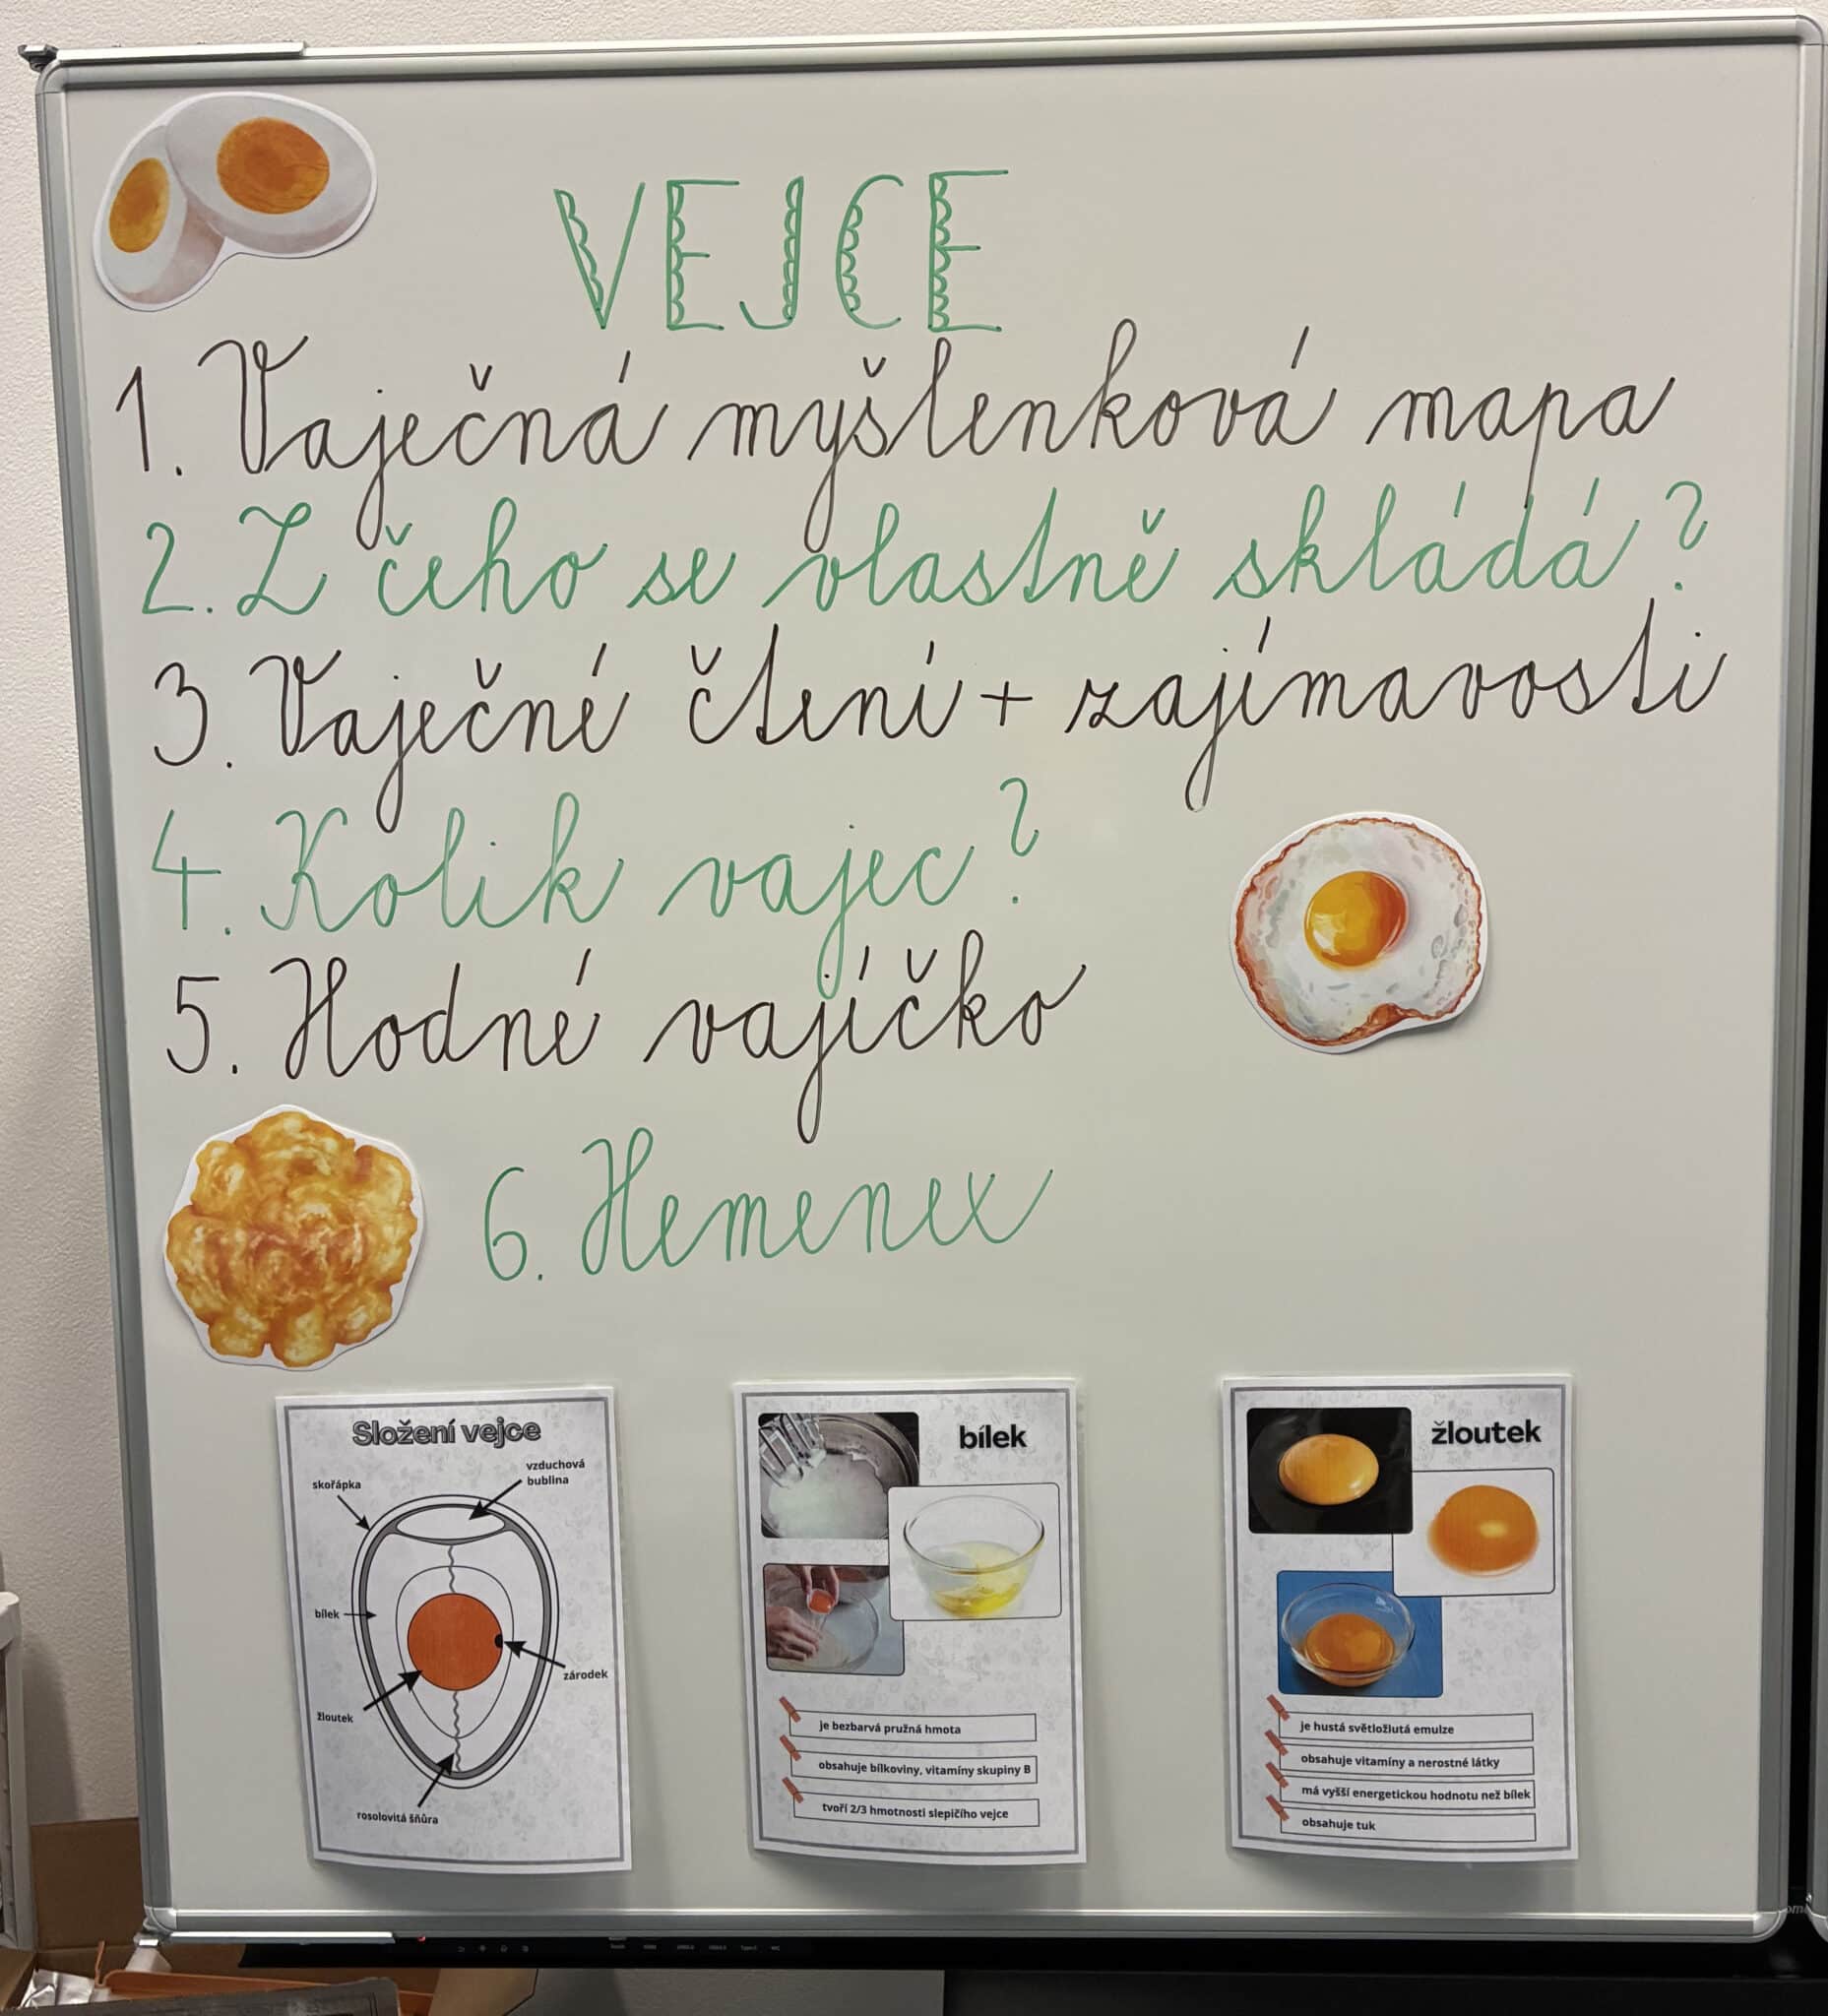 VEJCE
1. Vaječná myšlenková mapa
2. Z čeho se vlastně skládá?
3. Vaječné čtení + zajímavosti
4. Kolik vajec?
5. Hodné vajíčko
6. Hemenex
Složení vejce
vzduchová
bublina
skořápka
bílek
zárodek
žloutek
rosolovitá šňůra
bílek
je bezbarvá pružná hmota
obsahuje bílkoviny, vitamíny skupiny B
tvoří 2/3 hmotnosti slepičího vejce
žloutek
je hustá světložlutá emulze
obsahuje vitamíny a nerostné látky
má vyšší energetickou hodnotu než bílek
obsahuje tuk